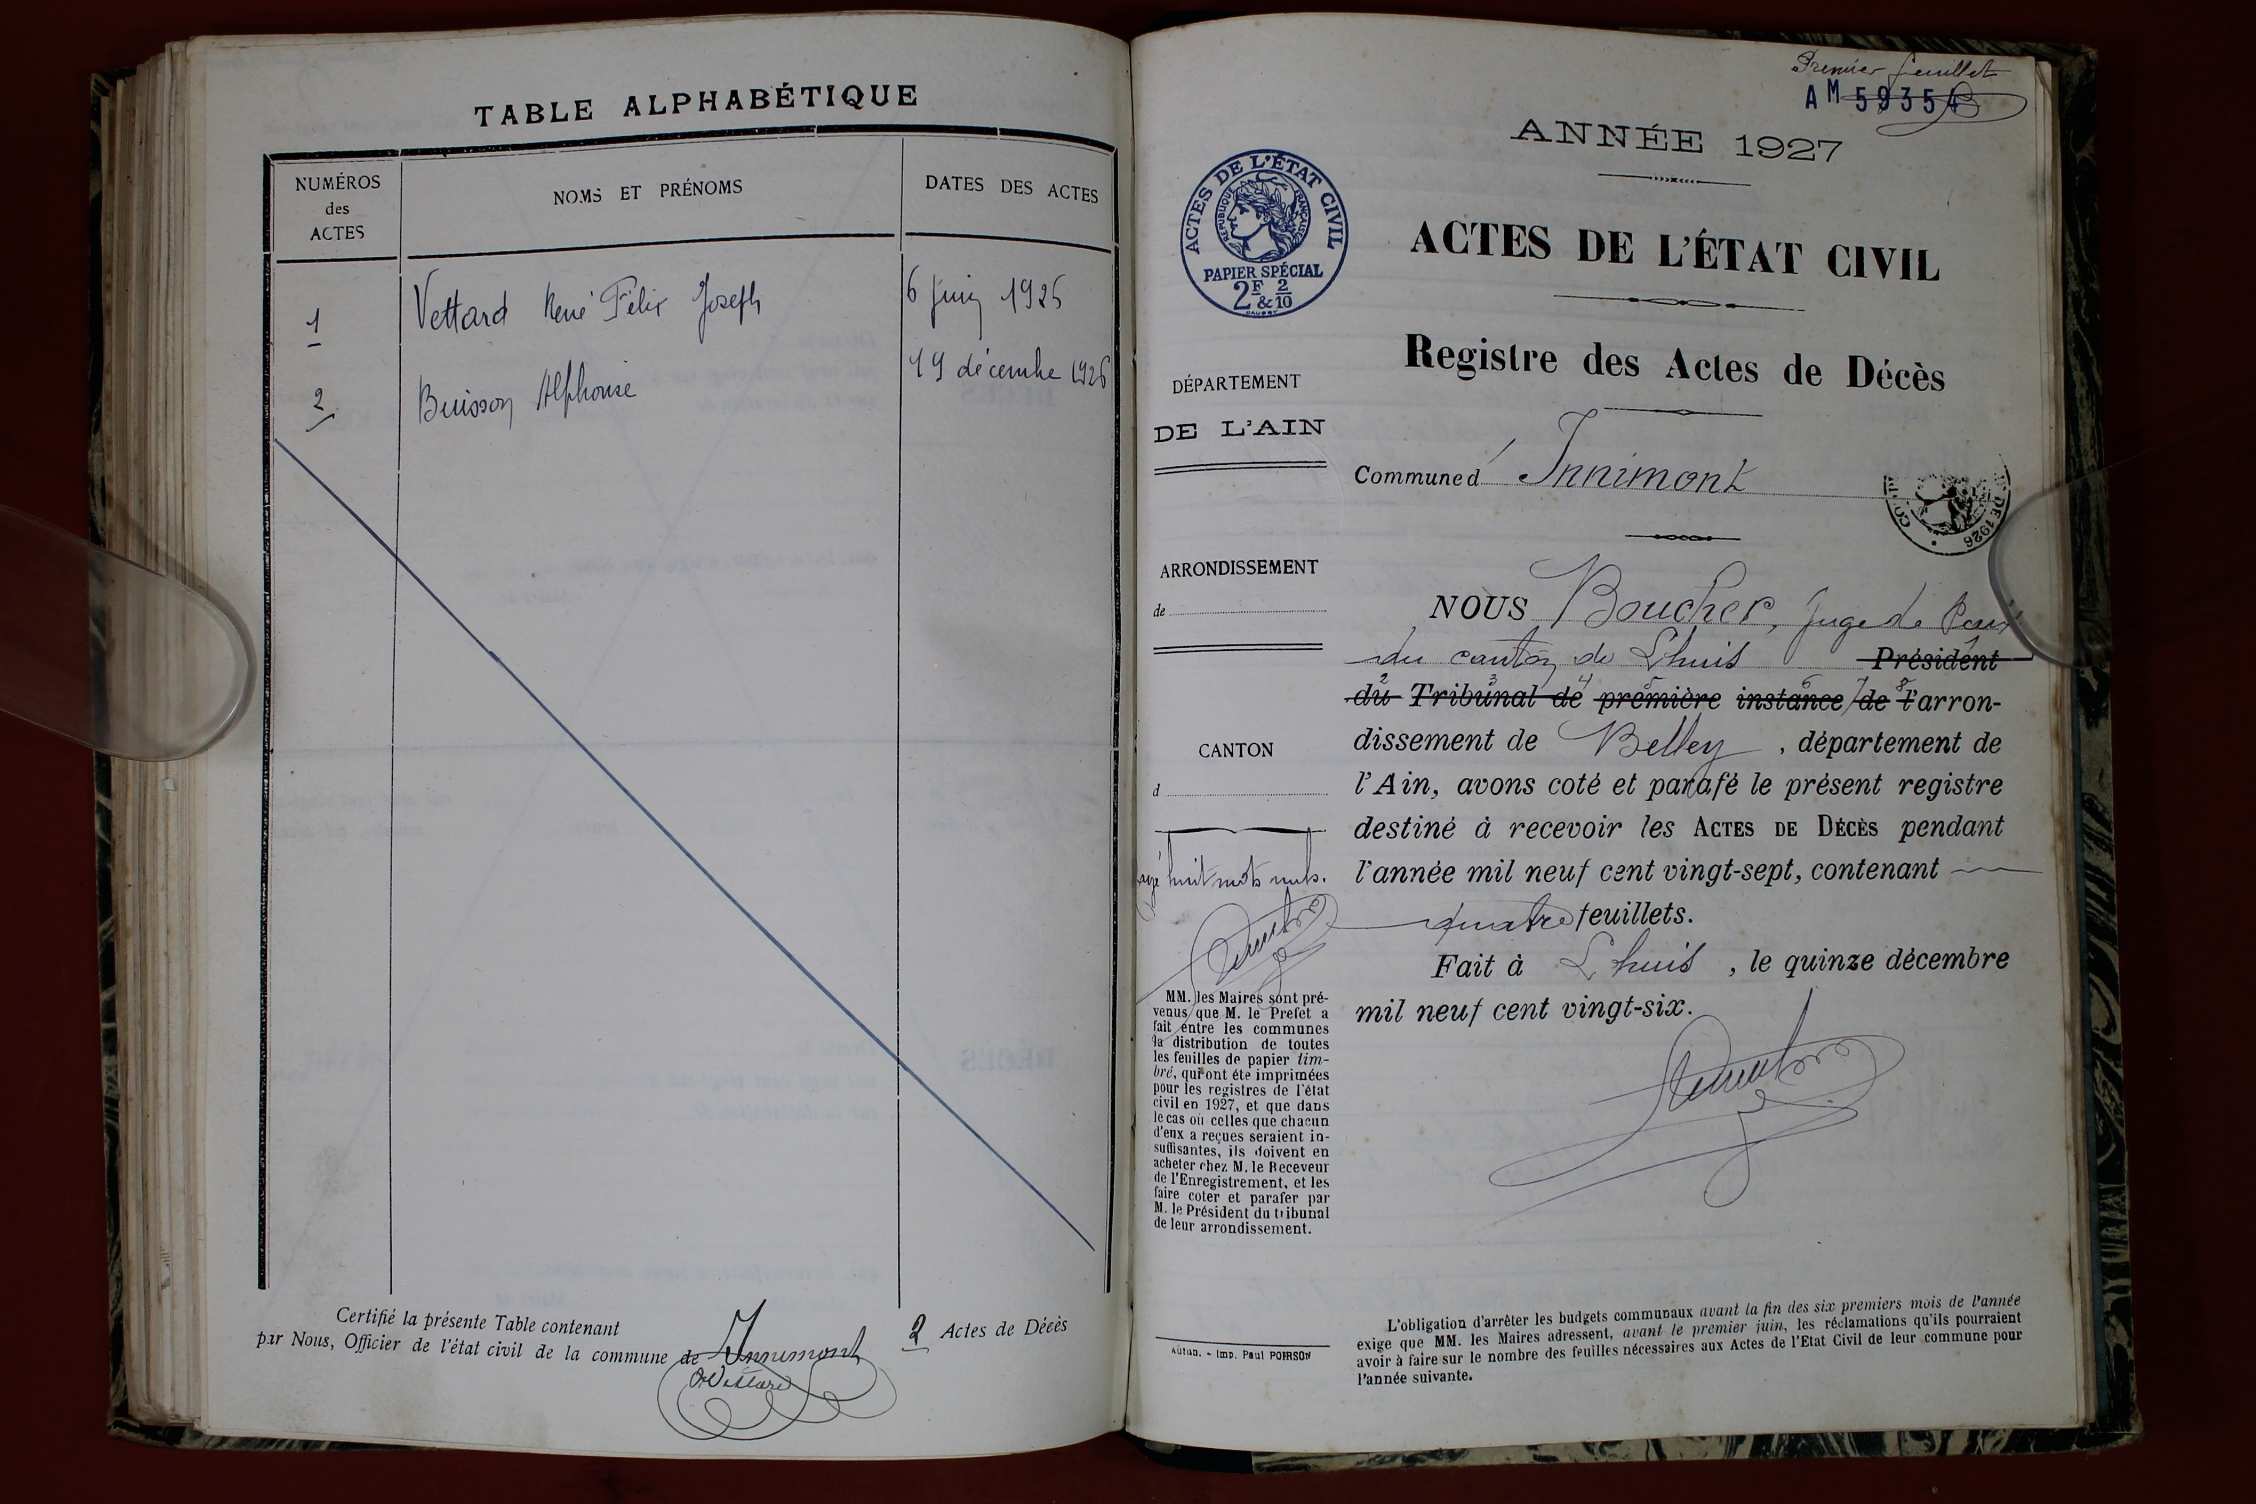 TABLE ALPHABÉTIQUE
NUMÉROS
des
ACTES
NOMS ET PRÉNOMS
DATES DES ACTES
1 Vettard René Félix Joseph 6 juin 1926
2 Buisson Alphonse 19 décembre 1926
Certifié la présente Table contenant 2 Actes de Décès
par Nous, Officier de l'état civil de la commune de Innimont
Vettard
Premier feuillet
AM 59354
ANNÉE 1927
ACTES DE L'ÉTAT CIVIL
RÉPUBLIQUE FRANÇAISE
PAPIER SPÉCIAL
2F & 2/10
ACTES DE L'ÉTAT CIVIL
Registre des Actes de Décès
DÉPARTEMENT
DE L'AIN
Commune d' Innimont
DE 1926
ARRONDISSEMENT
de
CANTON
d
NOUS Boucher, Juge de Paix
du canton de Lhuis Président
du Tribunal de première instance de l'arron-
dissement de Belley, département de
l'Ain, avons coté et parafé le présent registre
destiné à recevoir les ACTES DE DÉCÈS pendant
l'année mil neuf cent vingt-sept, contenant
quatre feuillets.
Fait à Lhuis, le quinze décembre
mil neuf cent vingt-six.
huit mots nuls.
MM. les Maires sont pré-
venus que M. le Prefet a
fait entre les communes
la distribution de toutes
les feuilles de papier tim-
bré, qui ont été imprimées
pour les registres de l'état
civil en 1927, et que dans
le cas où celles que chacun
d'enx a reçues seraient in-
suffisantes, ils doivent en
acheter chez M. le Receveur
de l'Enregistrement, et les
faire coter et parafer par
M. le Président du tribunal
de leur arrondissement.
Autun. - Imp. Paul POIRSON
L'obligation d'arrêter les budgets communaux avant la fin des six premiers mois de l'année
exige que MM. les Maires adressent, avant le premier juin, les réclamations qu'ils pourraient
avoir à faire sur le nombre des feuilles nécessaires aux Actes de l'Etat Civil de leur commune pour
l'année suivante.